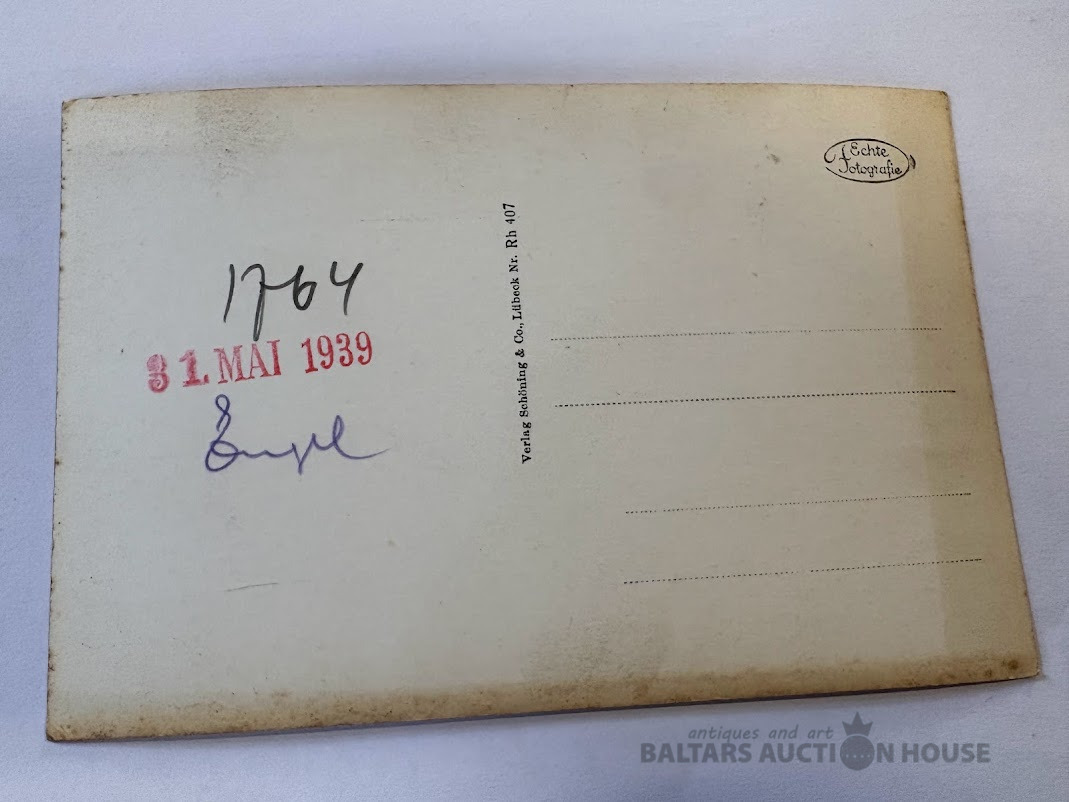 Echte
Fotografie
Verlag Schöning & Co., Lübeck Nr. Rh 407
1764
31. MAI 1939
antiques and art
BALTARS AUCTION HOUSE